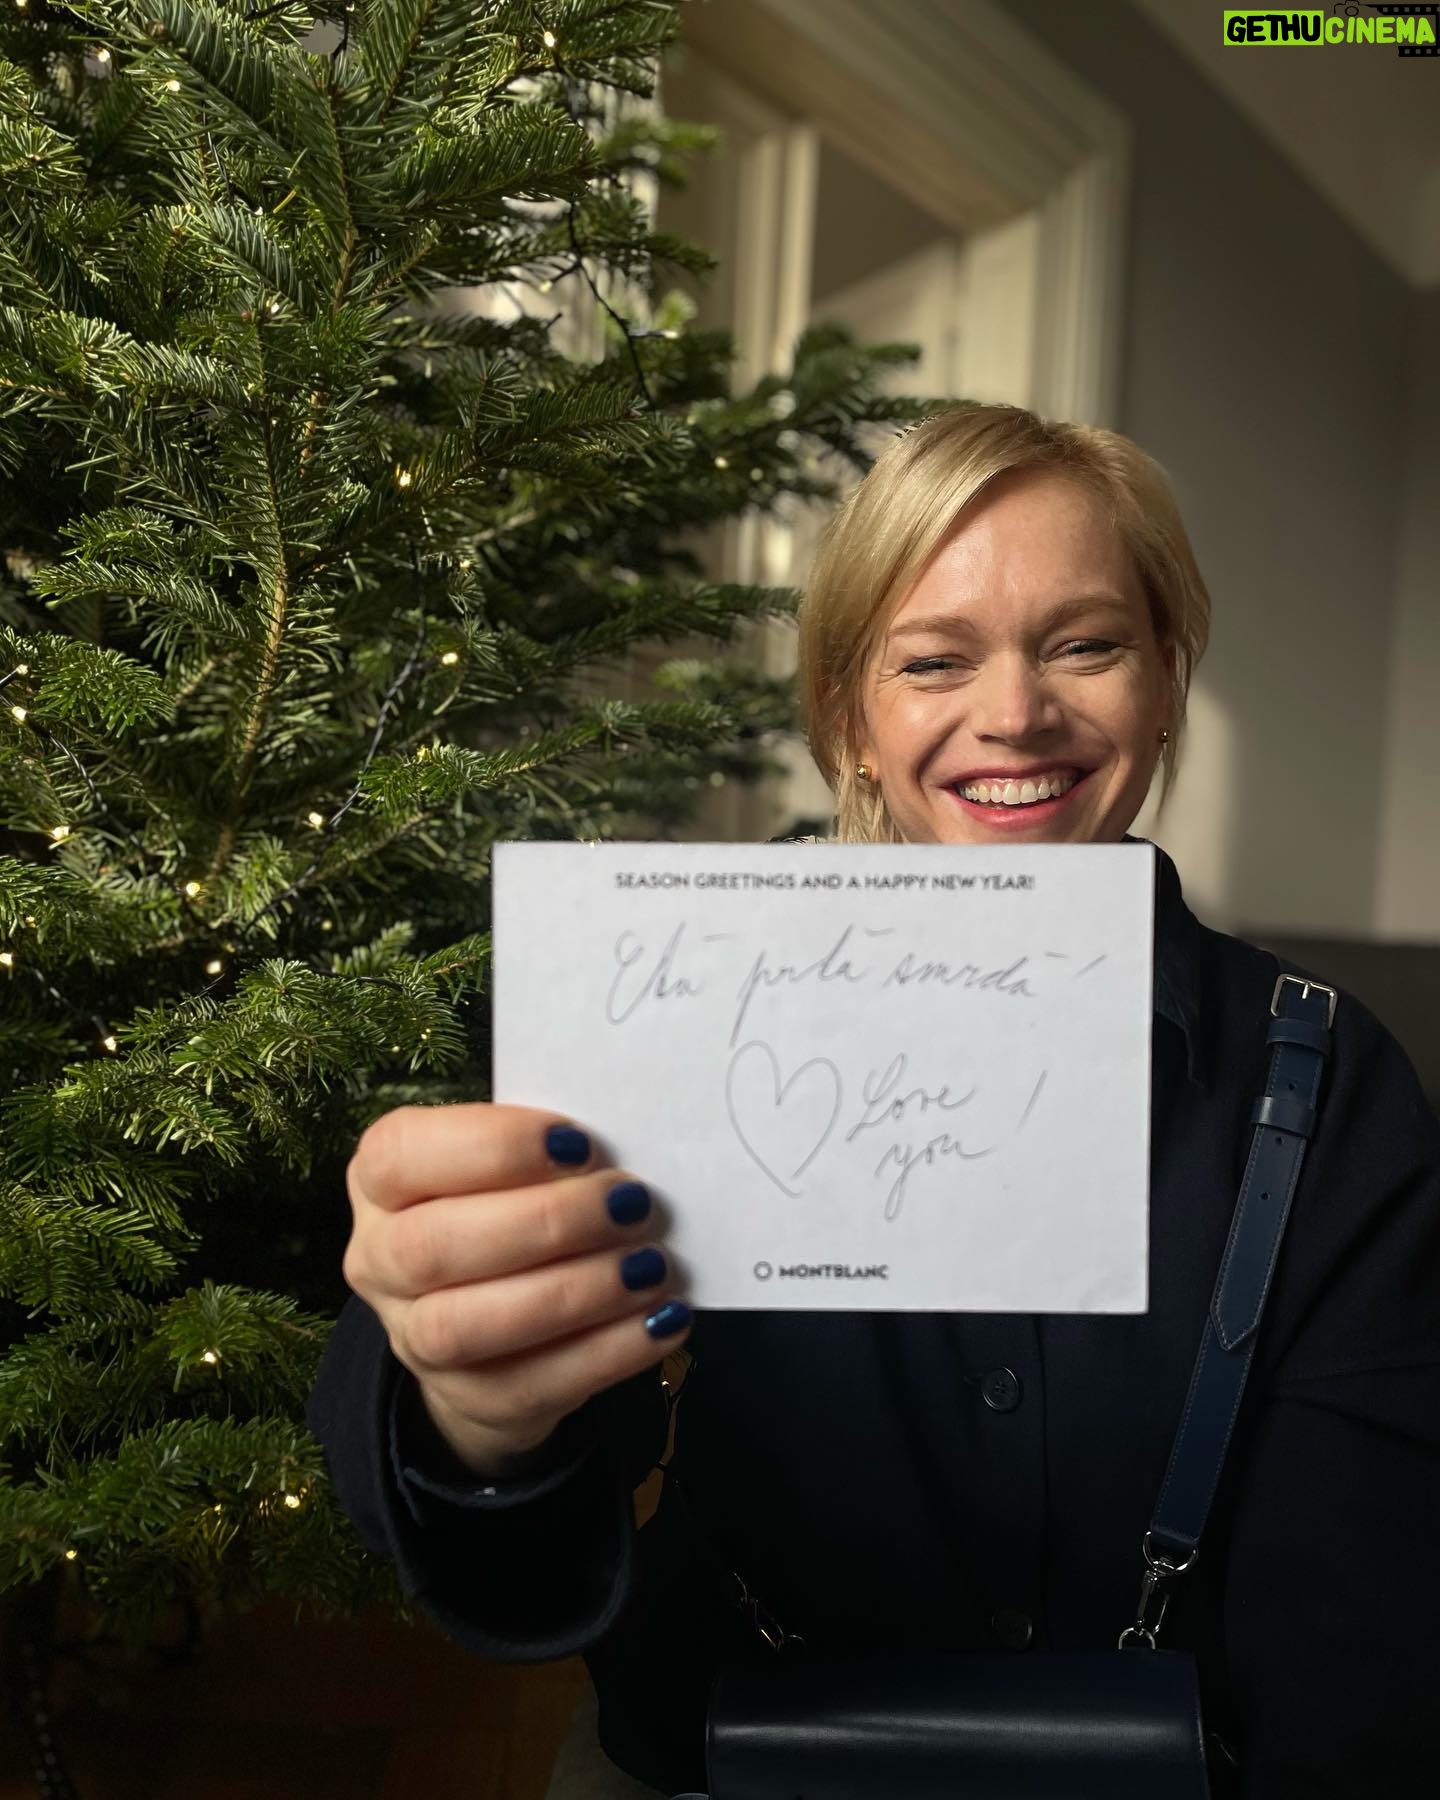 GETHUCINEMA
SEASON GREETINGS AND A HAPPY NEW YEAR!
prdá smrdá!
Love
you!
MONTBLANC